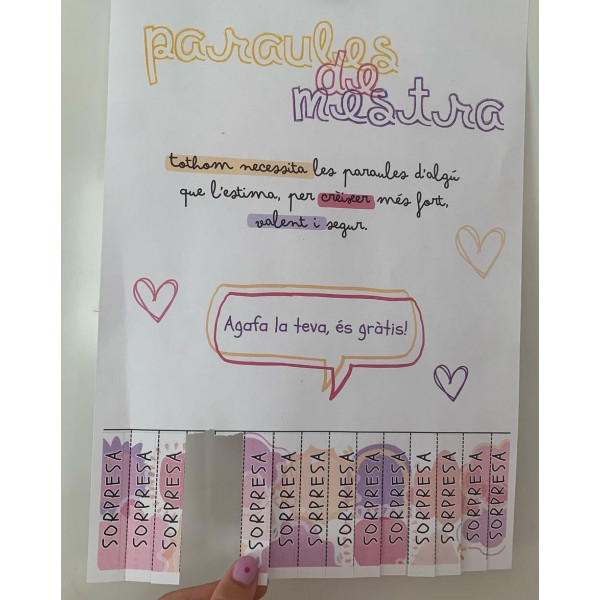 paraules
de
mestra
tothom necessita les paraules d'algú
que l'estima, per crèixer més fort,
valent i segur.
Agafa la teva, és gràtis!
SORPRESA
SORPRESA
SORPRESA
SORPRESA
SORPRESA
SORPRESA
SORPRESA
SORPRESA
SORPRESA
SORPRESA
SORPRESA
SORPRESA
SORPRESA